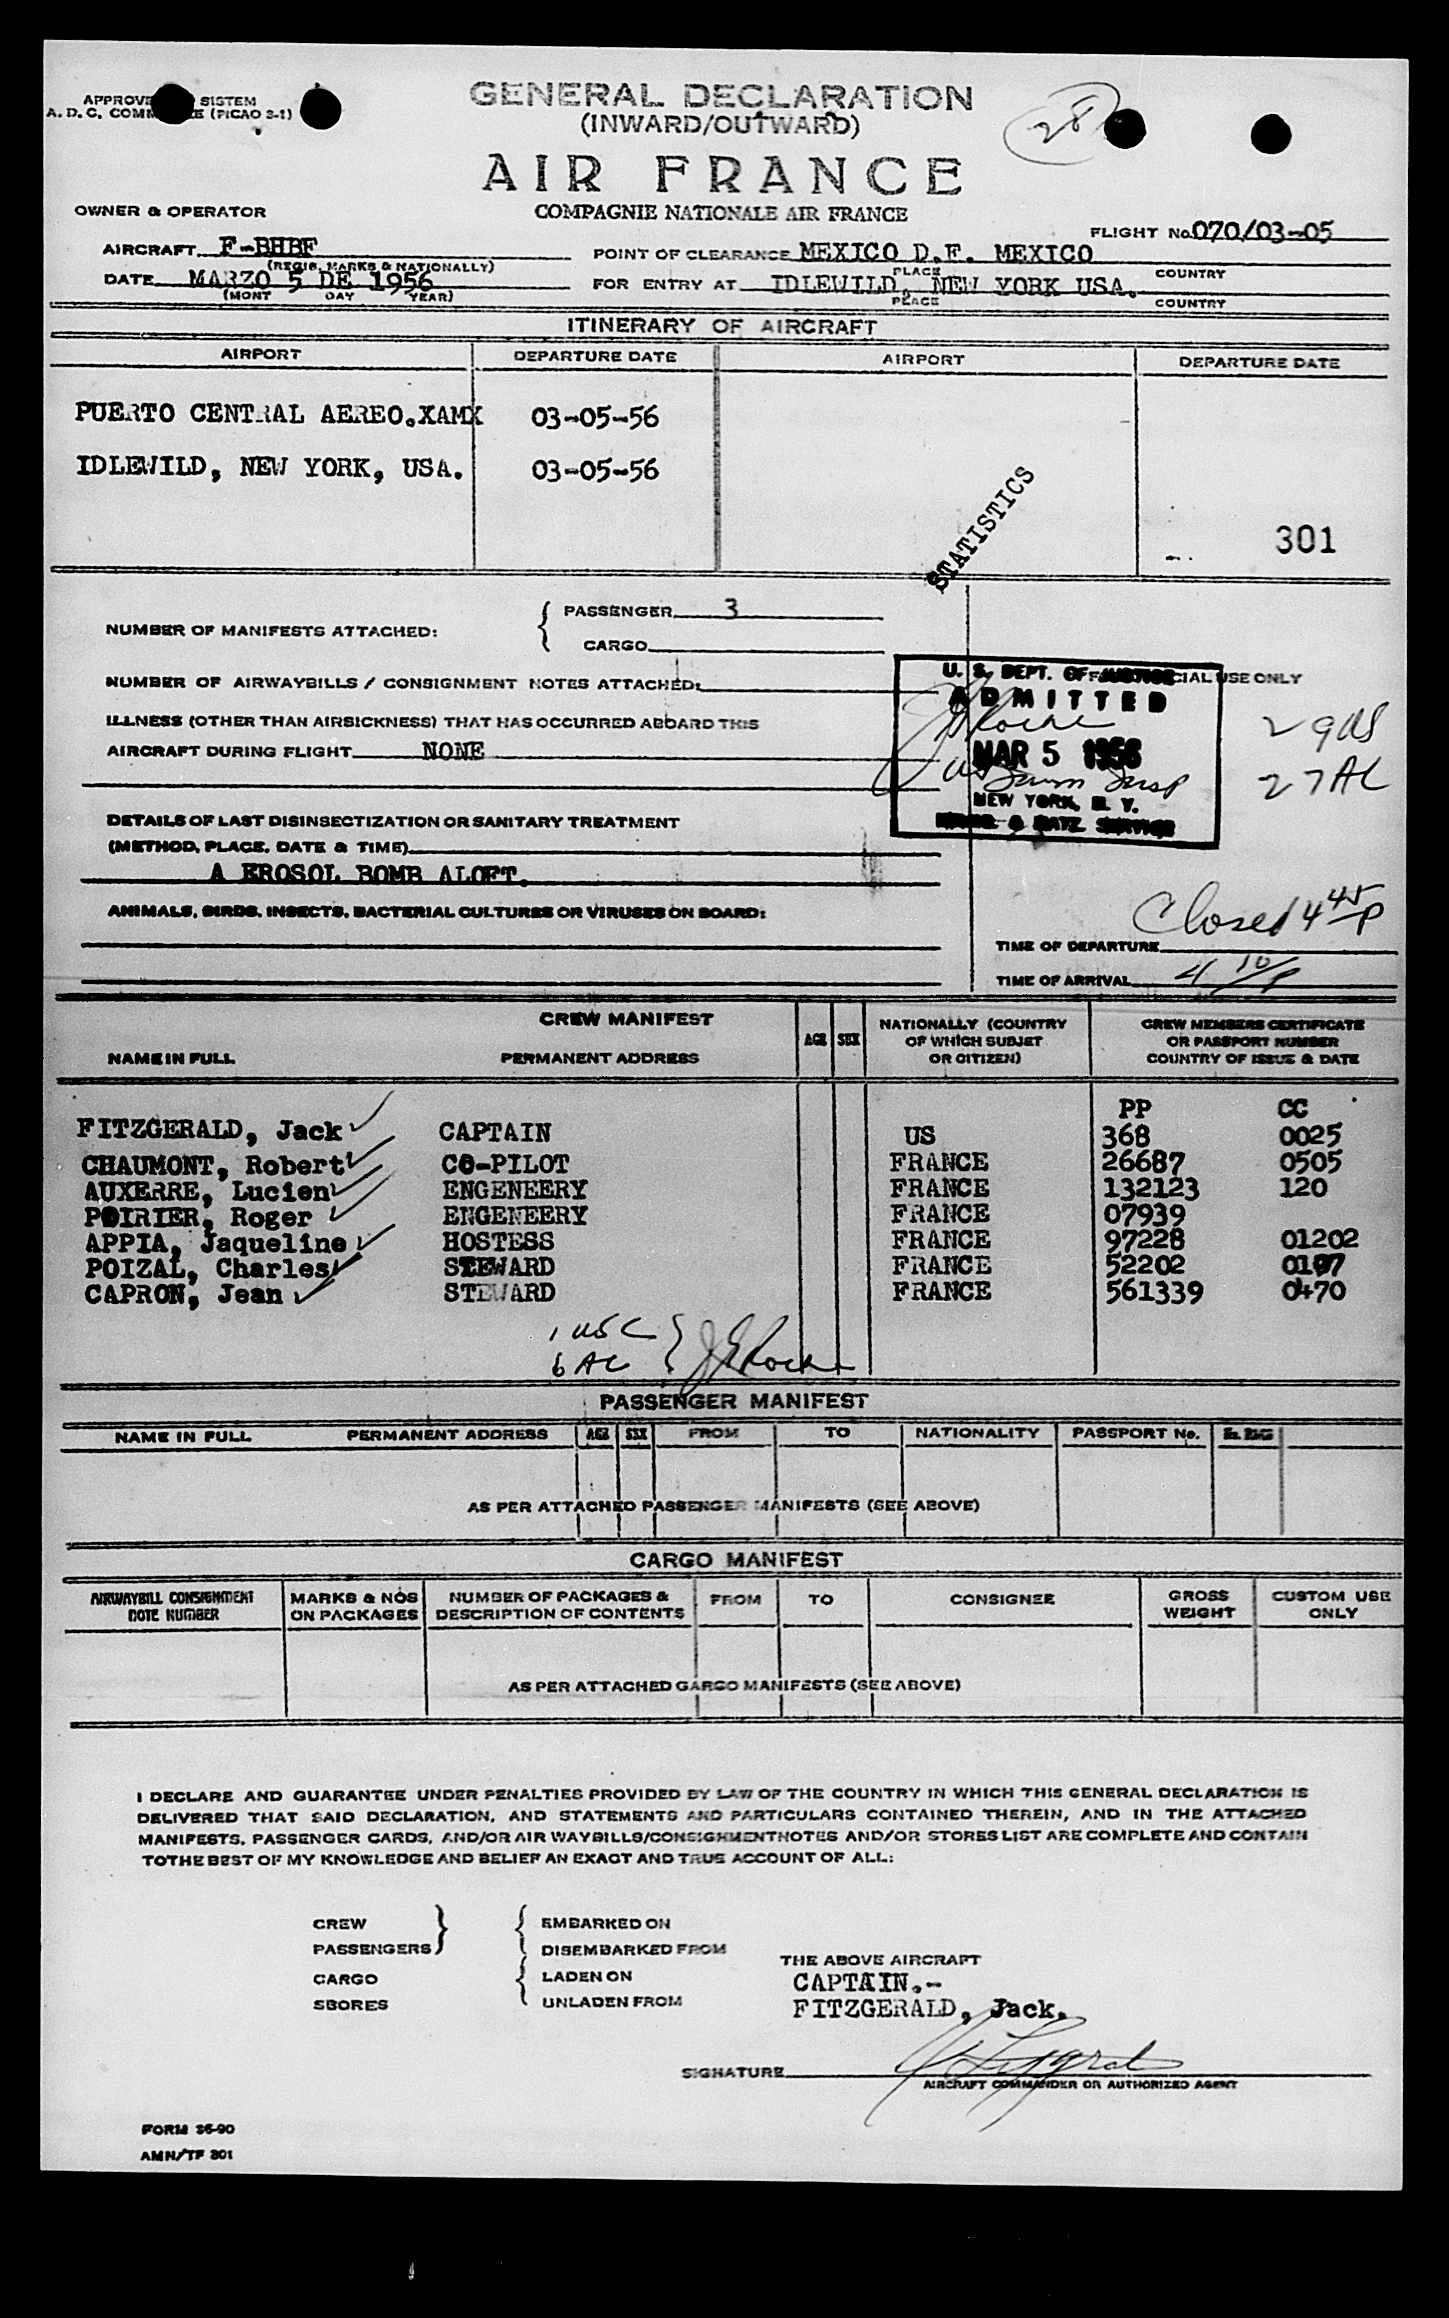 APPROVE SISTEM
A. D. C. COMM (PICAO 2-1)
GENERAL DECLARATION
(INWARD/OUTWARD)
28
AIR FRANCE
COMPAGNIE NATIONALE AIR FRANCE
OWNER & OPERATOR
FLIGHT No 070/03-05
AIRCRAFT F-BHBF
(REGIS. MARKS & NATIONALLY)
POINT OF CLEARANCE MEXICO D.F. MEXICO
PLACE COUNTRY
DATE MARZO 5 DE 1956
(MONT DAY YEAR)
FOR ENTRY AT IDLEWILD, NEW YORK USA.
PLACE COUNTRY
ITINERARY OF AIRCRAFT
AIRPORT DEPARTURE DATE AIRPORT DEPARTURE DATE
PUERTO CENTRAL AEREO.XAMX 03-05-56
IDLEWILD, NEW YORK, USA. 03-05-56
STATISTICS
301
NUMBER OF MANIFESTS ATTACHED:
PASSENGER 3
CARGO
NUMBER OF AIRWAYBILLS / CONSIGNMENT NOTES ATTACHED:
CIAL USE ONLY
U. S. DEPT. OF JUSTICE
ADMITTED
MAR 5 1956
NEW YORK, N. Y.
2 9 US
27 AL
ILLNESS (OTHER THAN AIRSICKNESS) THAT HAS OCCURRED ABOARD THIS
AIRCRAFT DURING FLIGHT NONE
DETAILS OF LAST DISINSECTIZATION OR SANITARY TREATMENT
(METHOD, PLACE, DATE & TIME)
A EROSOL BOMB ALOFT.
ANIMALS, BIRDS, INSECTS, BACTERIAL CULTURES OR VIRUSES ON BOARD:
Closed 4 45 P
TIME OF DEPARTURE
TIME OF ARRIVAL 4 10 P
CREW MANIFEST
NAME IN FULL PERMANENT ADDRESS AGE SEX NATIONALLY (COUNTRY OF WHICH SUBJET OR CITIZEN) CREW MEMBERS CERTIFICATE OR PASSPORT NUMBER COUNTRY OF ISSUE & DATE
PP CC
FITZGERALD, Jack CAPTAIN US 368 0025
CHAUMONT, Robert CO-PILOT FRANCE 26687 0505
AUXERRE, Lucien ENGENEERY FRANCE 132123 120
POIRIER, Roger ENGENEERY FRANCE 07939
APPIA, Jaqueline HOSTESS FRANCE 97228 01202
POIZAL, Charles STEWARD FRANCE 52202 0107
CAPRON, Jean STEWARD FRANCE 561339 0470
1 USC
6 AL
PASSENGER MANIFEST
NAME IN FULL PERMANENT ADDRESS AGE SEX FROM TO NATIONALITY PASSPORT No.
AS PER ATTACHED PASSENGER MANIFESTS (SEE ABOVE)
CARGO MANIFEST
AIRWAYBILL CONSIGNMENT NOTE NUMBER MARKS & NOS ON PACKAGES NUMBER OF PACKAGES & DESCRIPTION OF CONTENTS FROM TO CONSIGNEE GROSS WEIGHT CUSTOM USE ONLY
AS PER ATTACHED CARGO MANIFESTS (SEE ABOVE)
I DECLARE AND GUARANTEE UNDER PENALTIES PROVIDED BY LAW OF THE COUNTRY IN WHICH THIS GENERAL DECLARATION IS
DELIVERED THAT SAID DECLARATION, AND STATEMENTS AND PARTICULARS CONTAINED THEREIN, AND IN THE ATTACHED
MANIFESTS, PASSENGER CARDS, AND/OR AIR WAYBILLS/CONSIGHMENTNOTES AND/OR STORES LIST ARE COMPLETE AND CONTAIN
TOTHE BEST OF MY KNOWLEDGE AND BELIEF AN EXACT AND TRUE ACCOUNT OF ALL:
CREW EMBARKED ON
PASSENGERS DISEMBARKED FROM
THE ABOVE AIRCRAFT
CARGO LADEN ON
CAPTAIN.-
SBORES UNLADEN FROM
FITZGERALD, Jack.
SIGNATURE
AIRCRAFT COMMANDER OR AUTHORIZED AGENT
FORM 36-90
AMN/TF 301